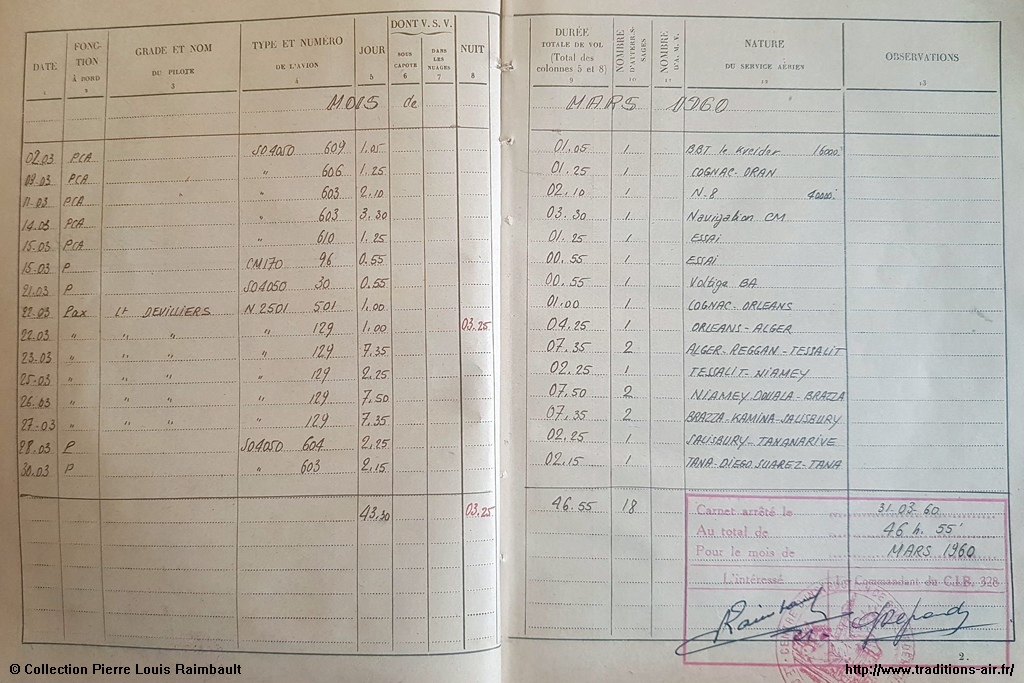 DATE FONC-TION À BORD GRADE ET NOM DU PILOTE TYPE ET NUMÉRO DE L'AVION JOUR DONT V. S. V. SOUS CAPOTE DANS LES NUAGES NUIT DURÉE TOTALE DE VOL (Total des colonnes 5 et 8) NOMBRE D'ATTERRIS-SAGES NOMBRE D'A. M. V. NATURE DU SERVICE AÉRIEN OBSERVATIONS
1 2 3 4 5 6 7 8 9 10 11 12 13
MOIS de MARS 1960
02.03 PCA SO4050 609 1.05 01.05 1 BBT le Kreider 16000'
09.03 PCA " 606 1.25 01.25 1 COGNAC-ORAN
11.03 PCA " 603 2.10 02.10 1 N-8 40000'
14.03 PCA " 603 3.30 03.30 1 Navigation CM
15.03 PCA " 610 1.25 01.25 1 ESSAi
15.03 P CM170 96 0.55 00.55 1 ESSAi
21.03 P SO4050 30 0.55 00.55 1 Voltige BA
22.03 Pax Lt DEVILLIERS N 2501 501 1.00 01.00 1 COGNAC-ORLEANS
22.03 " " " " 129 1.00 03.25 04.25 1 ORLEANS-ALGER
23.03 " " " " 129 7.35 07.35 2 ALGER-REGGAN-TESSALIT
25.03 " " " " 129 2.25 02.25 1 TESSALIT-NIAMEY
26.03 " " " " 129 7.50 07.50 2 NIAMEY.DOUALA-BRAZZA
27.03 " " " " 129 7.35 07.35 2 BRAZZA-KAMINA-SALISBURY
28.03 P SO4050 604 2.25 02.25 1 SALISBURY-TANANARIVE
30.03 P " 603 2.15 02.15 1 TANA-DIEGO SUAREZ-TANA
43.30 03.25 46.55 18
Carnet arrêté le 31-03-60
Au total de 46 h. 55'
Pour le mois de MARS 1960
L'intéressé Le Commandant du C.I.B. 328
Raimbault
2.
© Collection Pierre Louis Raimbault
http://www.traditions-air.fr/